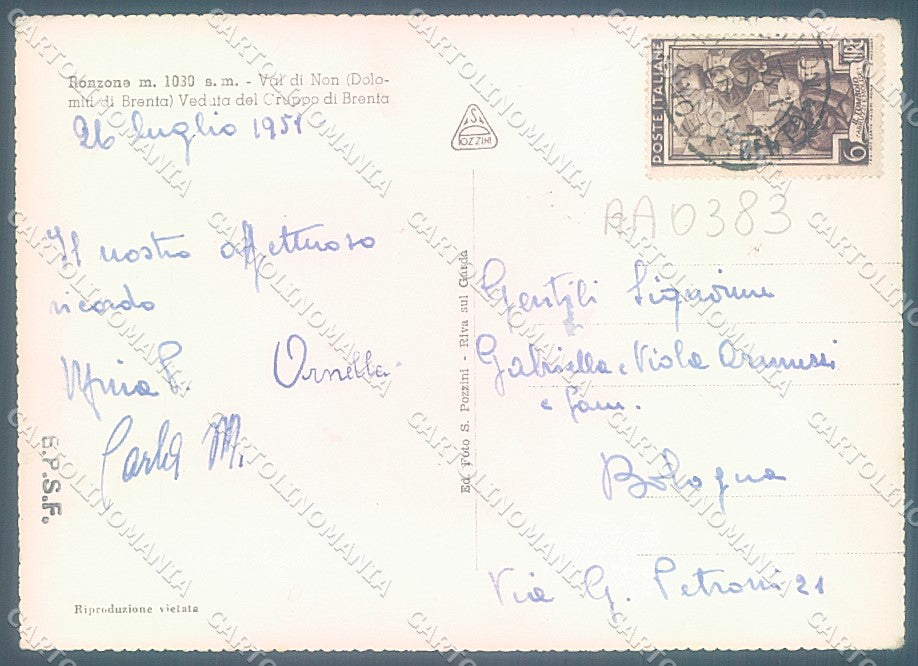 Ronzone m. 1030 s.m. - Val di Non (Dolo-
miti di Brenta) Veduta del Gruppo di Brenta
26 luglio 1951
Il nostro affettuoso
ricordo
Ornella
Carla M.
E.P.S.F.
Riproduzione vietata
Ed. Foto S. Pozzini - Riva sul Garda
POZZINI
POSTE ITALIANE
LIRE
6
AA0383
Gentili Signorine
Gabriella e Viola
e fam.
Bologna
Via G. Petroni 21
CARTOLINOMANIA